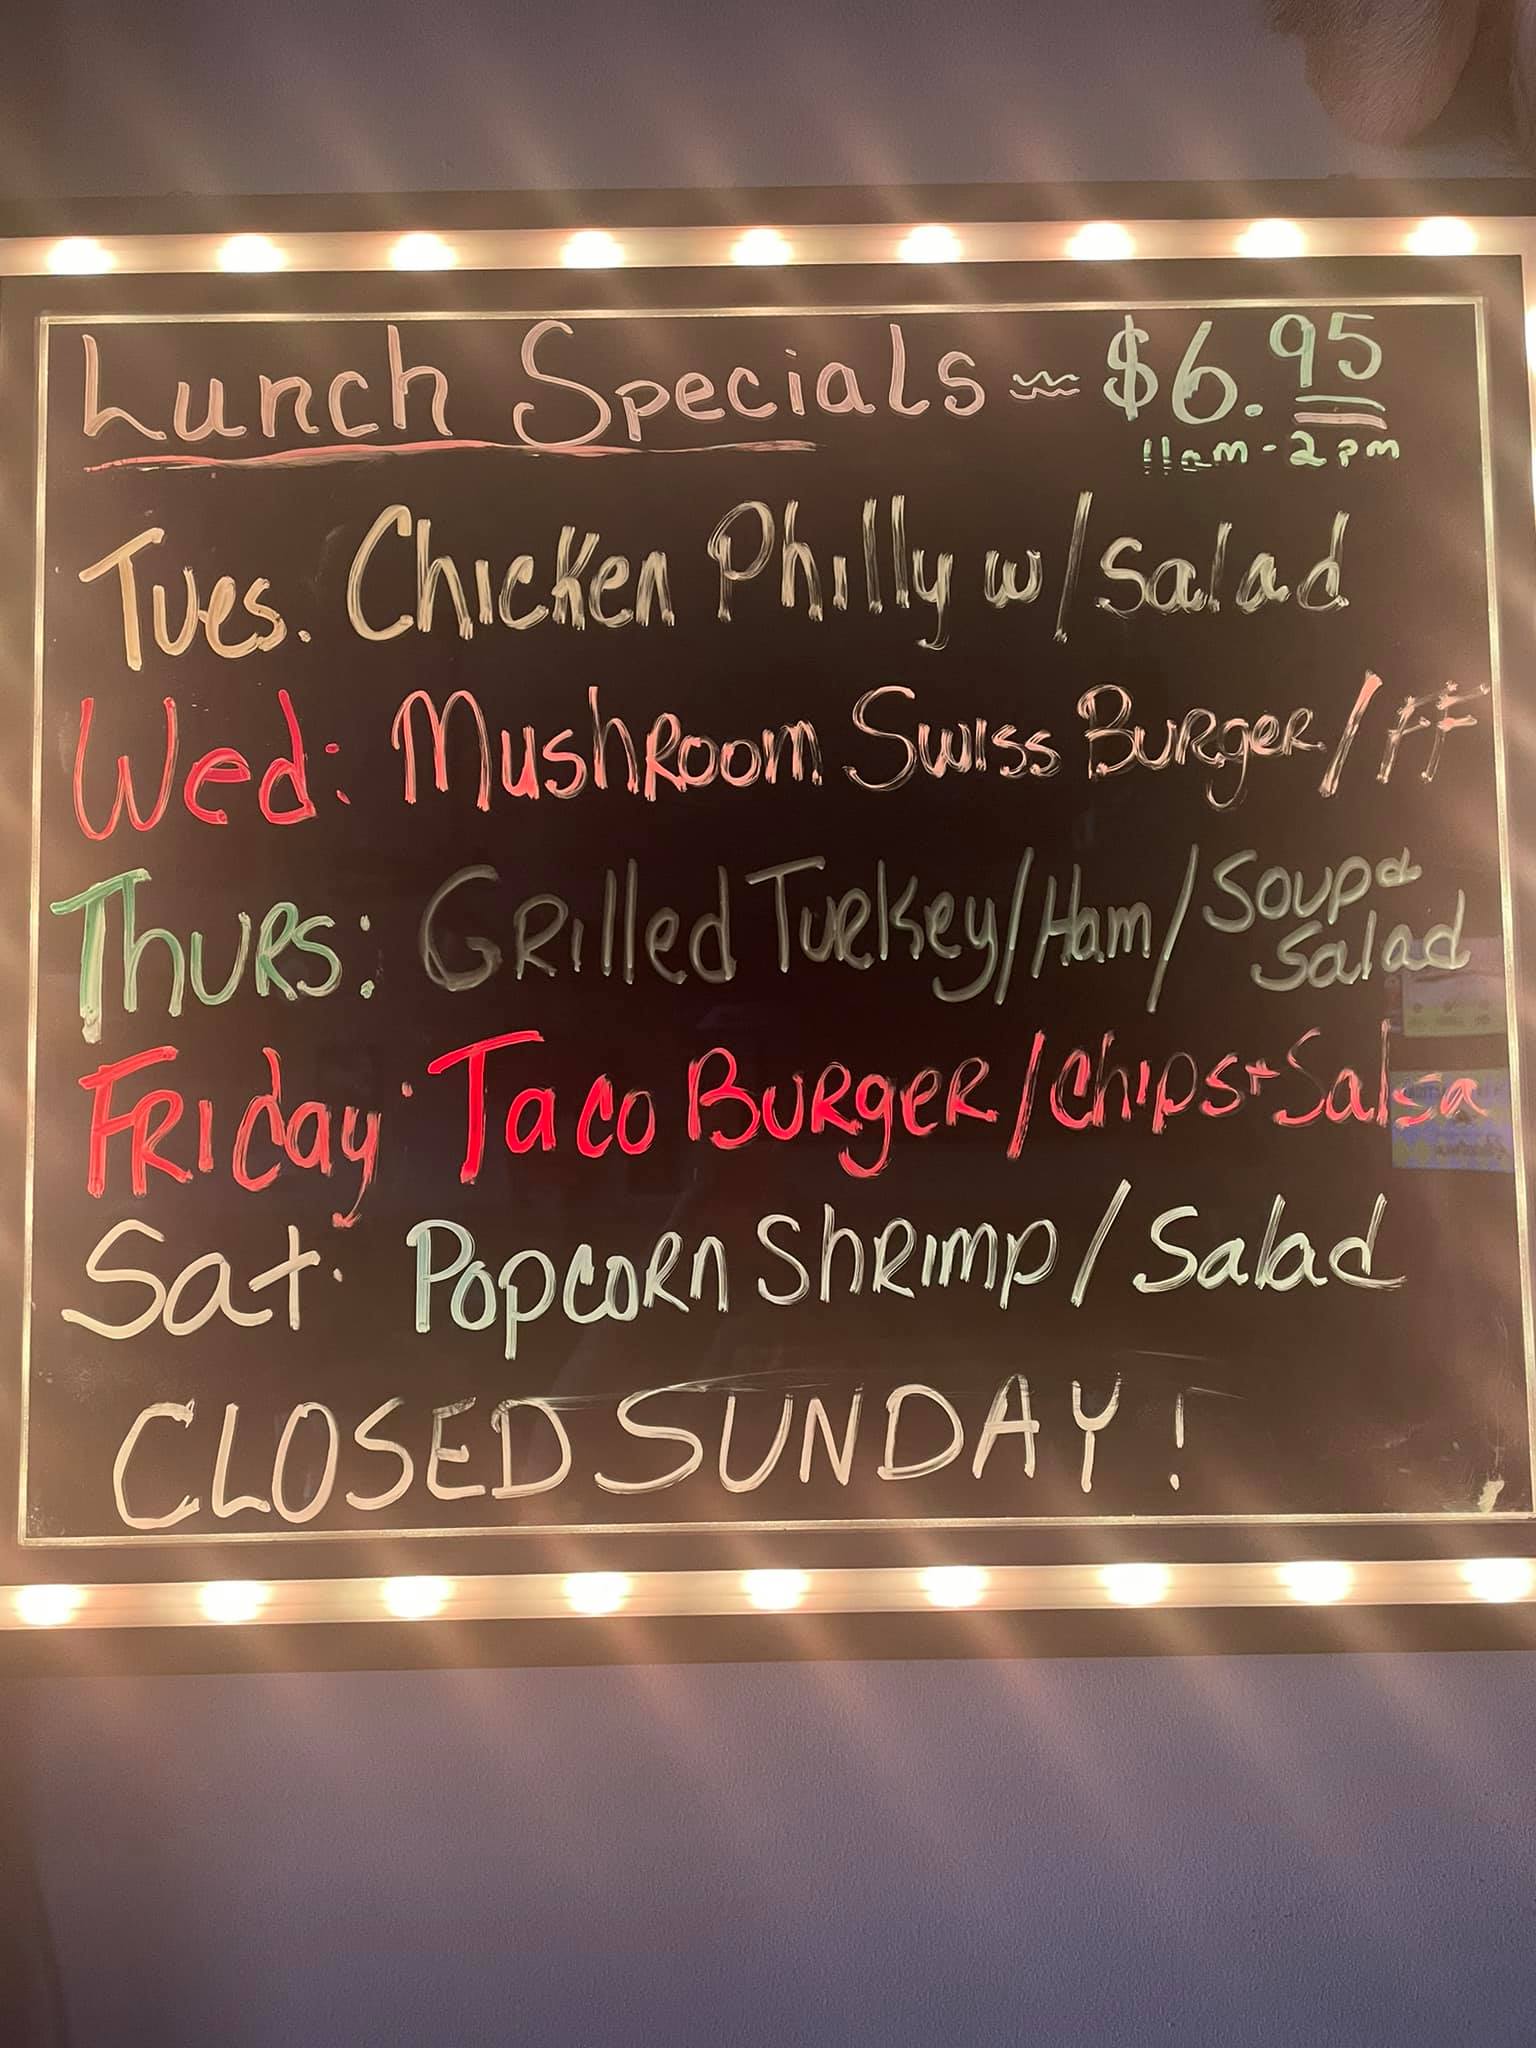 Lunch Specials ~ $6.95
11am-2pm
Tues. Chicken Philly w/Salad
Wed: Mushroom Swiss Burger/FF
Thurs: Grilled Turkey/Ham/Soup &
Salad
Friday· Taco Burger/Chips+Salsa
Sat· Popcorn Shrimp/Salad
CLOSED SUNDAY!